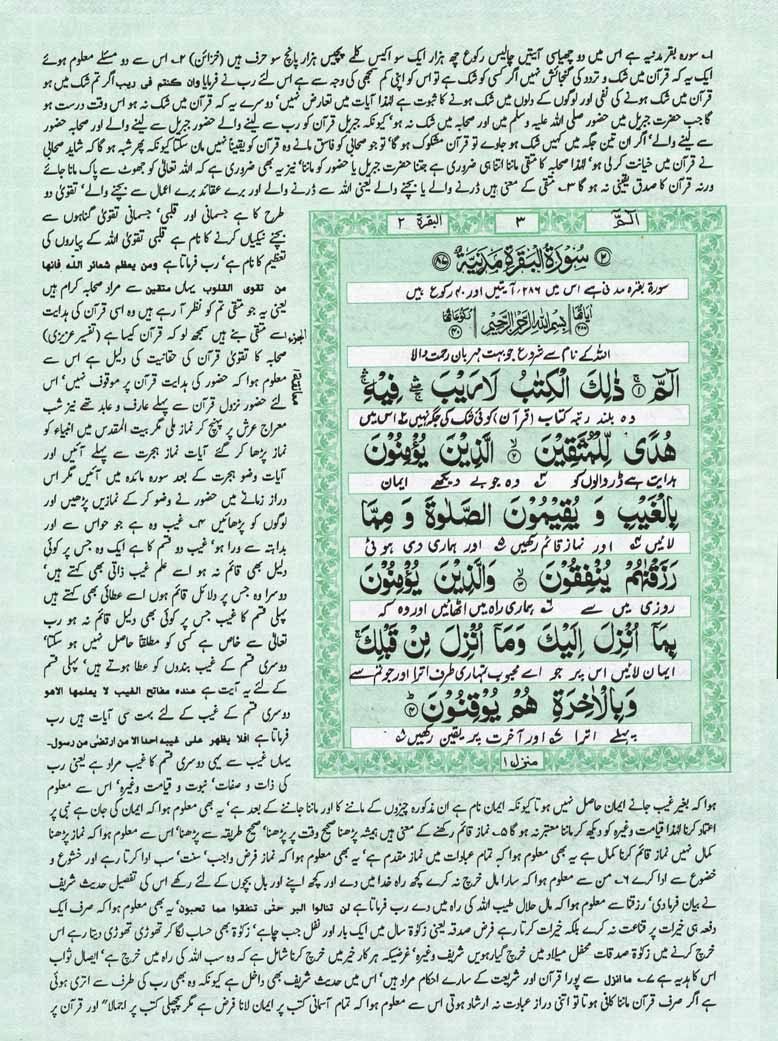 ۱۔ سورہ بقر مدنیہ ہے اس میں دو چھیاسی آیتیں چالیس رکوع چھ ہزار ایک سو اکیس کلمے پچیس ہزار پانچ سو حرف ہیں (خزائن) ۲۔ اس سے دو مسئلے معلوم ہوئے
ایک یہ کہ قرآن میں شک و تردد کی گنجائش نہیں اگر کسی کو شک ہے تو اس کو اپنی کم سمجھی کی وجہ سے ہے اس لئے رب نے فرمایا وان کنتم فی ریب اگر تم شک میں ہو
قرآن میں شک ہونے کی نفی اور لوگوں کے دلوں میں شک ہونے کا ثبوت ہے لہٰذا آیات میں تعارض نہیں' دوسرے یہ کہ قرآن میں شک نہ ہو اس وقت درست ہو
گا جب حضرت جبریل میں حضور صلی اللہ علیہ وسلم میں اور صحابہ میں شک نہ ہو' کیونکہ جبریل قرآن کو رب سے لینے والے حضور جبریل سے لینے والے اور صحابہ حضور
سے لینے والے' اگر ان تین جگہ میں کہیں شک ہو جاوے تو قرآن مشکوک ہو گا' تو جو صحابی کو فاسق مانے وہ قرآن کو یقیناً نہیں مان سکتا کیونکہ پھر شبہ ہو گا کہ شاید صحابی
نے قرآن میں خیانت کر لی ہو' لہٰذا صحابہ کا متقی ماننا اتنا ہی ضروری ہے جتنا حضرت جبریل یا حضور کو ماننا' نیز یہ بھی ضروری ہے کہ اللہ تعالیٰ کو جھوٹ سے پاک مانا جائے
ورنہ قرآن کا صدق یقینی نہ ہو گا ۳۔ متقی کے معنی ہیں ڈرنے والے یا بچنے والے یعنی اللہ سے ڈرنے والے اور برے عقائد برے اعمال سے بچنے والے' تقویٰ دو
طرح کا ہے جسمانی اور قلبی' جسمانی تقویٰ گناہوں سے
بچنے نیکیاں کرنے کا نام ہے قلبی تقویٰ اللہ کے پیاروں کی
تعظیم کا نام ہے' رب فرماتا ہے ومن یعظم شعائر اللہ فانھا
من تقوی القلوب یہاں متقین سے مراد صحابہ کرام ہیں
یعنی یہ جو متقی تم کو نظر آ رہے ہیں وہ اسی قرآن کی ہدایت
سے متقی بنے ہیں سمجھ لو کہ قرآن کیسا ہے (تفسیر عزیزی)
صحابہ کا تقویٰ قرآن کی حقانیت کی دلیل ہے اس سے
معلوم ہوا کہ حضور کی ہدایت قرآن پر موقوف نہیں' اس
لئے حضور نزول قرآن سے پہلے عارف و عابد تھے نیز شب
معراج عرش پر پہنچ کر نماز ملی مگر بیت المقدس میں انبیاء کو
نماز پڑھا کر گئے آیات نماز ہجرت سے پہلے آئیں اور
آیات وضو ہجرت کے بعد سورہ مائدہ میں آئیں مگر اس
دراز زمانے میں حضور نے وضو کر کے نمازیں پڑھیں اور
لوگوں کو پڑھائیں ۴۔ غیب وہ ہے جو حواس سے اور
بداہتہ سے ورا ہو' غیب دو قسم کا ہے ایک وہ جس پر کوئی
دلیل بھی قائم نہ ہو اسے علم غیب ذاتی بھی کہتے ہیں'
دوسرا وہ جس پر دلائل قائم ہوں اسے عطائی بھی کہتے ہیں
پہلی قسم کا غیب جس پر کوئی بھی دلیل قائم نہ ہو رب
تعالیٰ سے خاص ہے کسی کو مطلقاً حاصل نہیں ہو سکتا'
دوسری قسم کے غیب بندوں کو عطا ہوتے ہیں' پہلی قسم
کے لئے یہ آیت ہے عندہ مفاتح الغیب لا یعلمھا الاھو
دوسری قسم کے غیب کے لئے بہت سی آیات ہیں رب
فرماتا ہے افلا یظھر علی غیبہ احدا الا من ارتضٰی من رسول۔
یہاں غیب سے یہی دوسری قسم کا غیب مراد ہے یعنی رب
کی ذات و صفات' نبوت و قیامت وغیرہ' اس سے معلوم
الٓمّٓ ۳ البقرۃ ۲
۲ سُوْرَۃُ الْبَقَرَۃِ مَدَنِیَّۃٌ ۸۷
سورۃ بقرہ مدنی ہے اس میں ۲۸۶ آیتیں اور ۴۰ رکوع ہیں
اٰیاتھا ۲۸۶ بِسْمِ اللّٰهِ الرَّحْمٰنِ الرَّحِیْمِ رکوعاتھا ۴۰
اللہ کے نام سے شروع جو بہت مہربان رحمت والا
الٓمّٓ ۱ ذٰلِكَ الْكِتٰبُ لَا رَیْبَ فِیْهِ
وہ بلند رتبہ کتاب (قرآن) کوئی شک کی جگہ نہیں ۲ اس میں
هُدًی لِّلْمُتَّقِیْنَ ۲ الَّذِیْنَ یُؤْمِنُوْنَ
ہدایت ہے ڈر والوں کو ۳ وہ جو بے دیکھے ایمان
بِالْغَیْبِ وَ یُقِیْمُوْنَ الصَّلٰوةَ وَ مِمَّا
لائیں ۴ اور نماز قائم رکھیں ۵ اور ہماری دی ہوئی
رَزَقْنٰهُمْ یُنْفِقُوْنَ ۳ وَالَّذِیْنَ یُؤْمِنُوْنَ
روزی میں سے ۶ ہماری راہ میں اٹھائیں اور وہ کہ
بِمَاۤ اُنْزِلَ اِلَیْكَ وَمَاۤ اُنْزِلَ مِنْ قَبْلِكَ
ایمان لائیں اس پر جو اے محبوب تمہاری طرف اترا اور جو تم سے
وَبِالْاٰخِرَةِ هُمْ یُوْقِنُوْنَ ۴
پہلے اترا ۷ اور آخرت پر یقین رکھیں ۸
منزل ۱
ہوا کہ بغیر غیب جانے ایمان حاصل نہیں ہوتا کیونکہ ایمان نام ہے ان مذکورہ چیزوں کے ماننے کا اور ماننا جاننے کے بعد ہے' یہ بھی معلوم ہوا کہ ایمان کی جان ہے نبی پر
اعتماد کرنا لہٰذا قیامت وغیرہ کو دیکھ کر ماننا معتبر نہ ہو گا ۵۔ نماز قائم رکھنے کے معنی ہیں ہمیشہ پڑھنا صحیح وقت پر پڑھنا' صحیح طریقہ سے پڑھنا' اس سے معلوم ہوا کہ نماز پڑھنا
کمال نہیں نماز قائم کرنا کمال ہے یہ بھی معلوم ہوا کہ تمام عبادات میں نماز مقدم ہے' یہ بھی معلوم ہوا کہ نماز فرض واجب' سنت' سب ادا کرتا رہے اور خشوع و
خضوع سے ادا کرے ۶۔ من سے معلوم ہوا کہ سارا مال خرچ نہ کرے کچھ راہ خدا میں دے اور کچھ اپنے اور بال بچوں کے لئے رکھے اس کی تفصیل حدیث شریف
نے بیان فرما دی' رزقنا سے معلوم ہوا کہ مال حلال طیب اللہ کی راہ میں دے رب فرماتا ہے لن تنالوا البر حتی تنفقوا مما تحبون' یہ بھی معلوم ہوا کہ صرف ایک
دفعہ ہی خیرات پر قناعت نہ کرے بلکہ خیرات کرتا رہے فرض صدقہ یعنی زکوٰۃ سال میں ایک بار اور نفل جب چاہے' زکوٰۃ بھی حساب لگا کر تھوڑی تھوڑی دیتا رہے اس
خرچ کرنے میں زکوٰۃ صدقات محفل میلاد میں خرچ گیارہویں شریف وغیرہ' غرضیکہ ہر کار خیر میں خرچ کرنا شامل ہے کہ وہ سب اللہ کی راہ میں خرچ ہے' ایصال ثواب
اس کا ہدیہ ہے ۷۔ ما انزل سے پورا قرآن اور شریعت کے سارے احکام مراد ہیں' اس میں حدیث شریف بھی داخل ہے کیونکہ وہ بھی رب کی طرف سے اتری ہوئی
ہے اگر صرف قرآن ماننا کافی ہوتا تو اتنی دراز عبادت نہ ارشاد ہوتی اس سے معلوم ہوا کہ تمام آسمانی کتب پر ایمان لانا فرض ہے مگر پچھلی کتب پر اجمالاً" اور قرآن پر